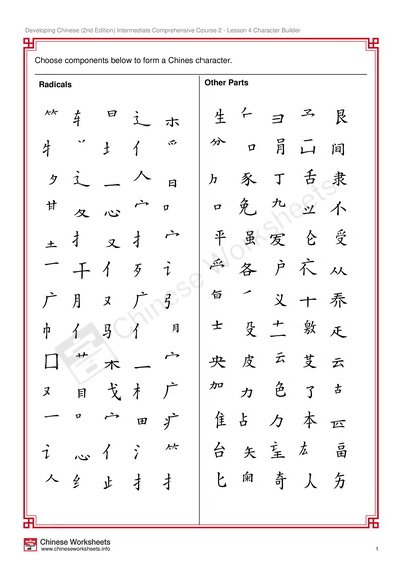 Developing Chinese (2nd Edition) Intermediate Comprehensive Course 2 - Lesson 4 Character Builder
Choose components below to form a Chines character.
Radicals
⺮ 车 日 辶 木
牜 丷 土 亻 癶
夕 辶 一 人 日
甘 夂 心 宀 口
土 扌 又 扌 宀
乛 干 亻 歹 讠
广 月 又 广 弓
巾 亻 马 亻 月
囗 艹 木 一 宀
又 目 戈 木 广
一 口 宀 田 疒
讠 心 亻 氵 ⺮
人 纟 止 扌 扌
Other Parts
生 彐 艮
口 肙 间
豕 丁 舌 隶
口 免 九 业 不
平 虽 爰 仑 受
各 户 从
义 十 乔
士 殳 敫 疋
央 皮 云 芟 云
加 力 色 了 古
隹 占 力 本
台 矢 左 畐
匕 奇 人 另
Chinese Worksheets
Chinese Worksheets
www.chineseworksheets.info
1